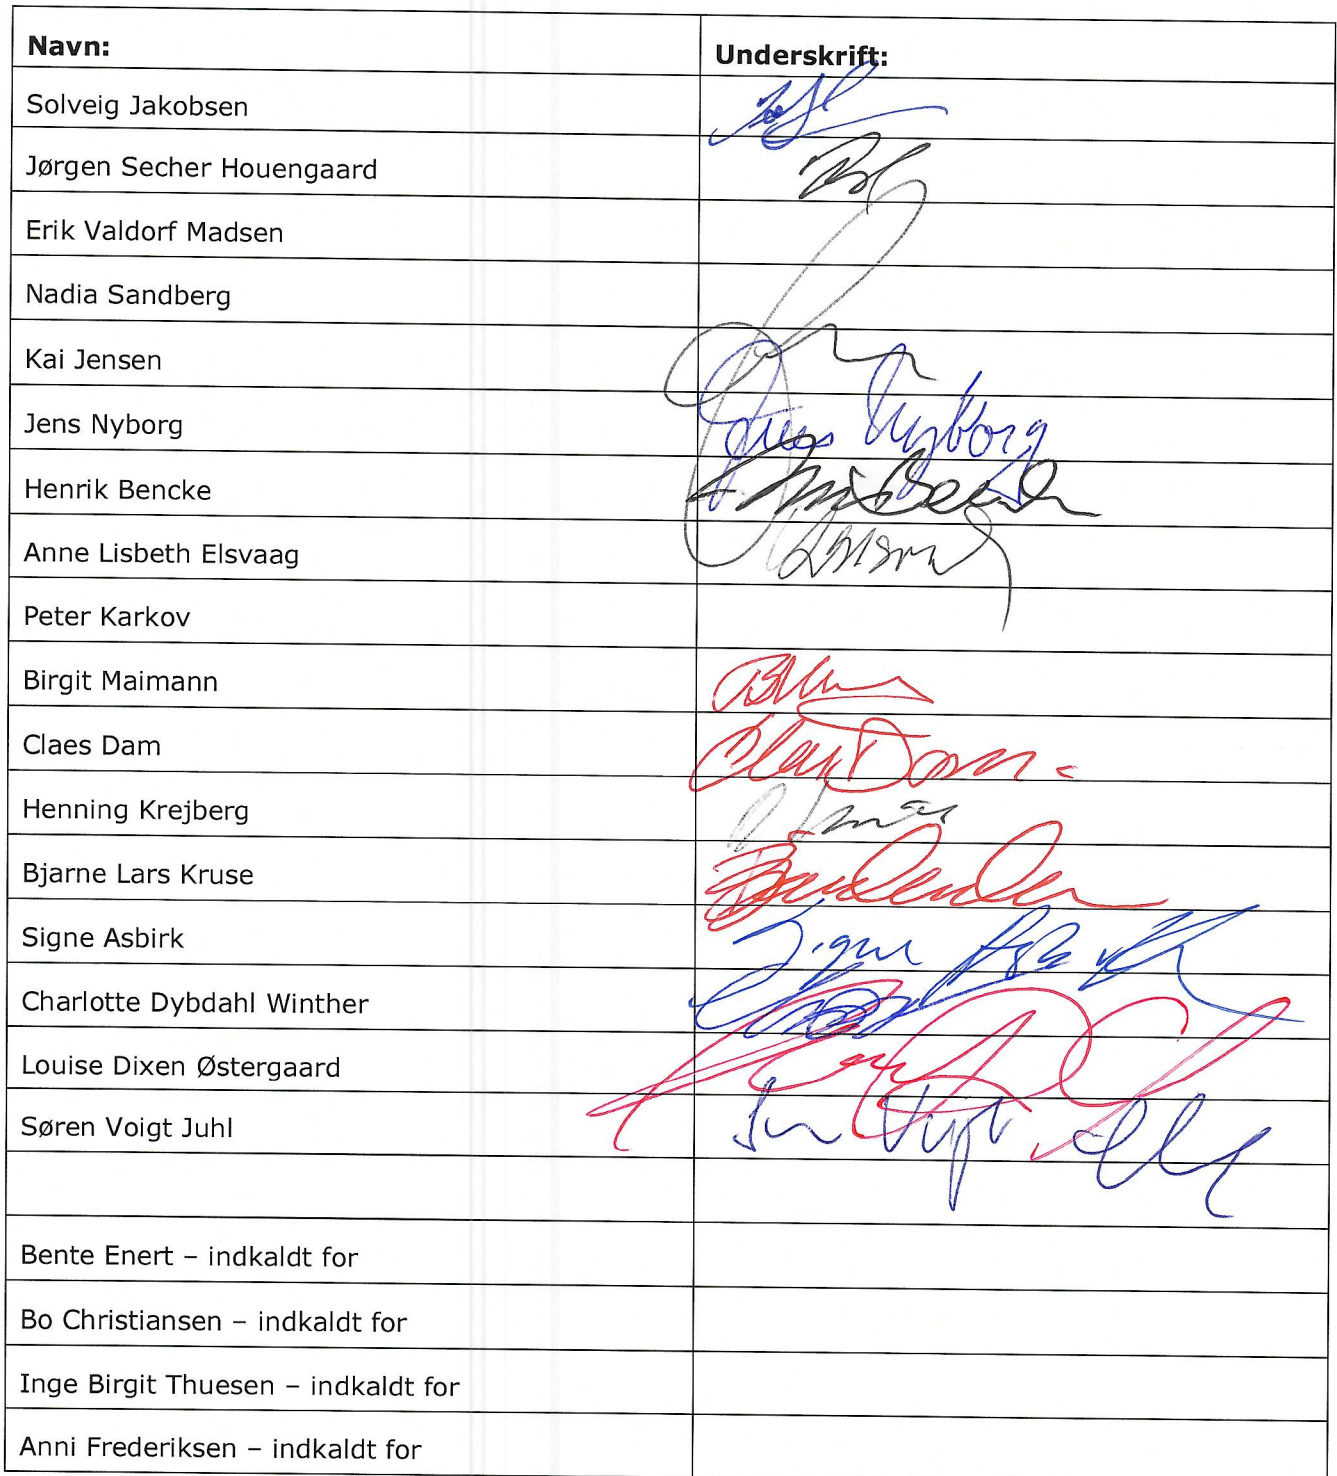 Navn: Underskrift:
Solveig Jakobsen
Jørgen Secher Houengaard
Erik Valdorf Madsen
Nadia Sandberg
Kai Jensen
Jens Nyborg Jens Nyborg
Henrik Bencke
Anne Lisbeth Elsvaag
Peter Karkov
Birgit Maimann
Claes Dam Claes Dam
Henning Krejberg
Bjarne Lars Kruse
Signe Asbirk Signe Asbirk
Charlotte Dybdahl Winther
Louise Dixen Østergaard
Søren Voigt Juhl
Bente Enert – indkaldt for
Bo Christiansen – indkaldt for
Inge Birgit Thuesen – indkaldt for
Anni Frederiksen – indkaldt for